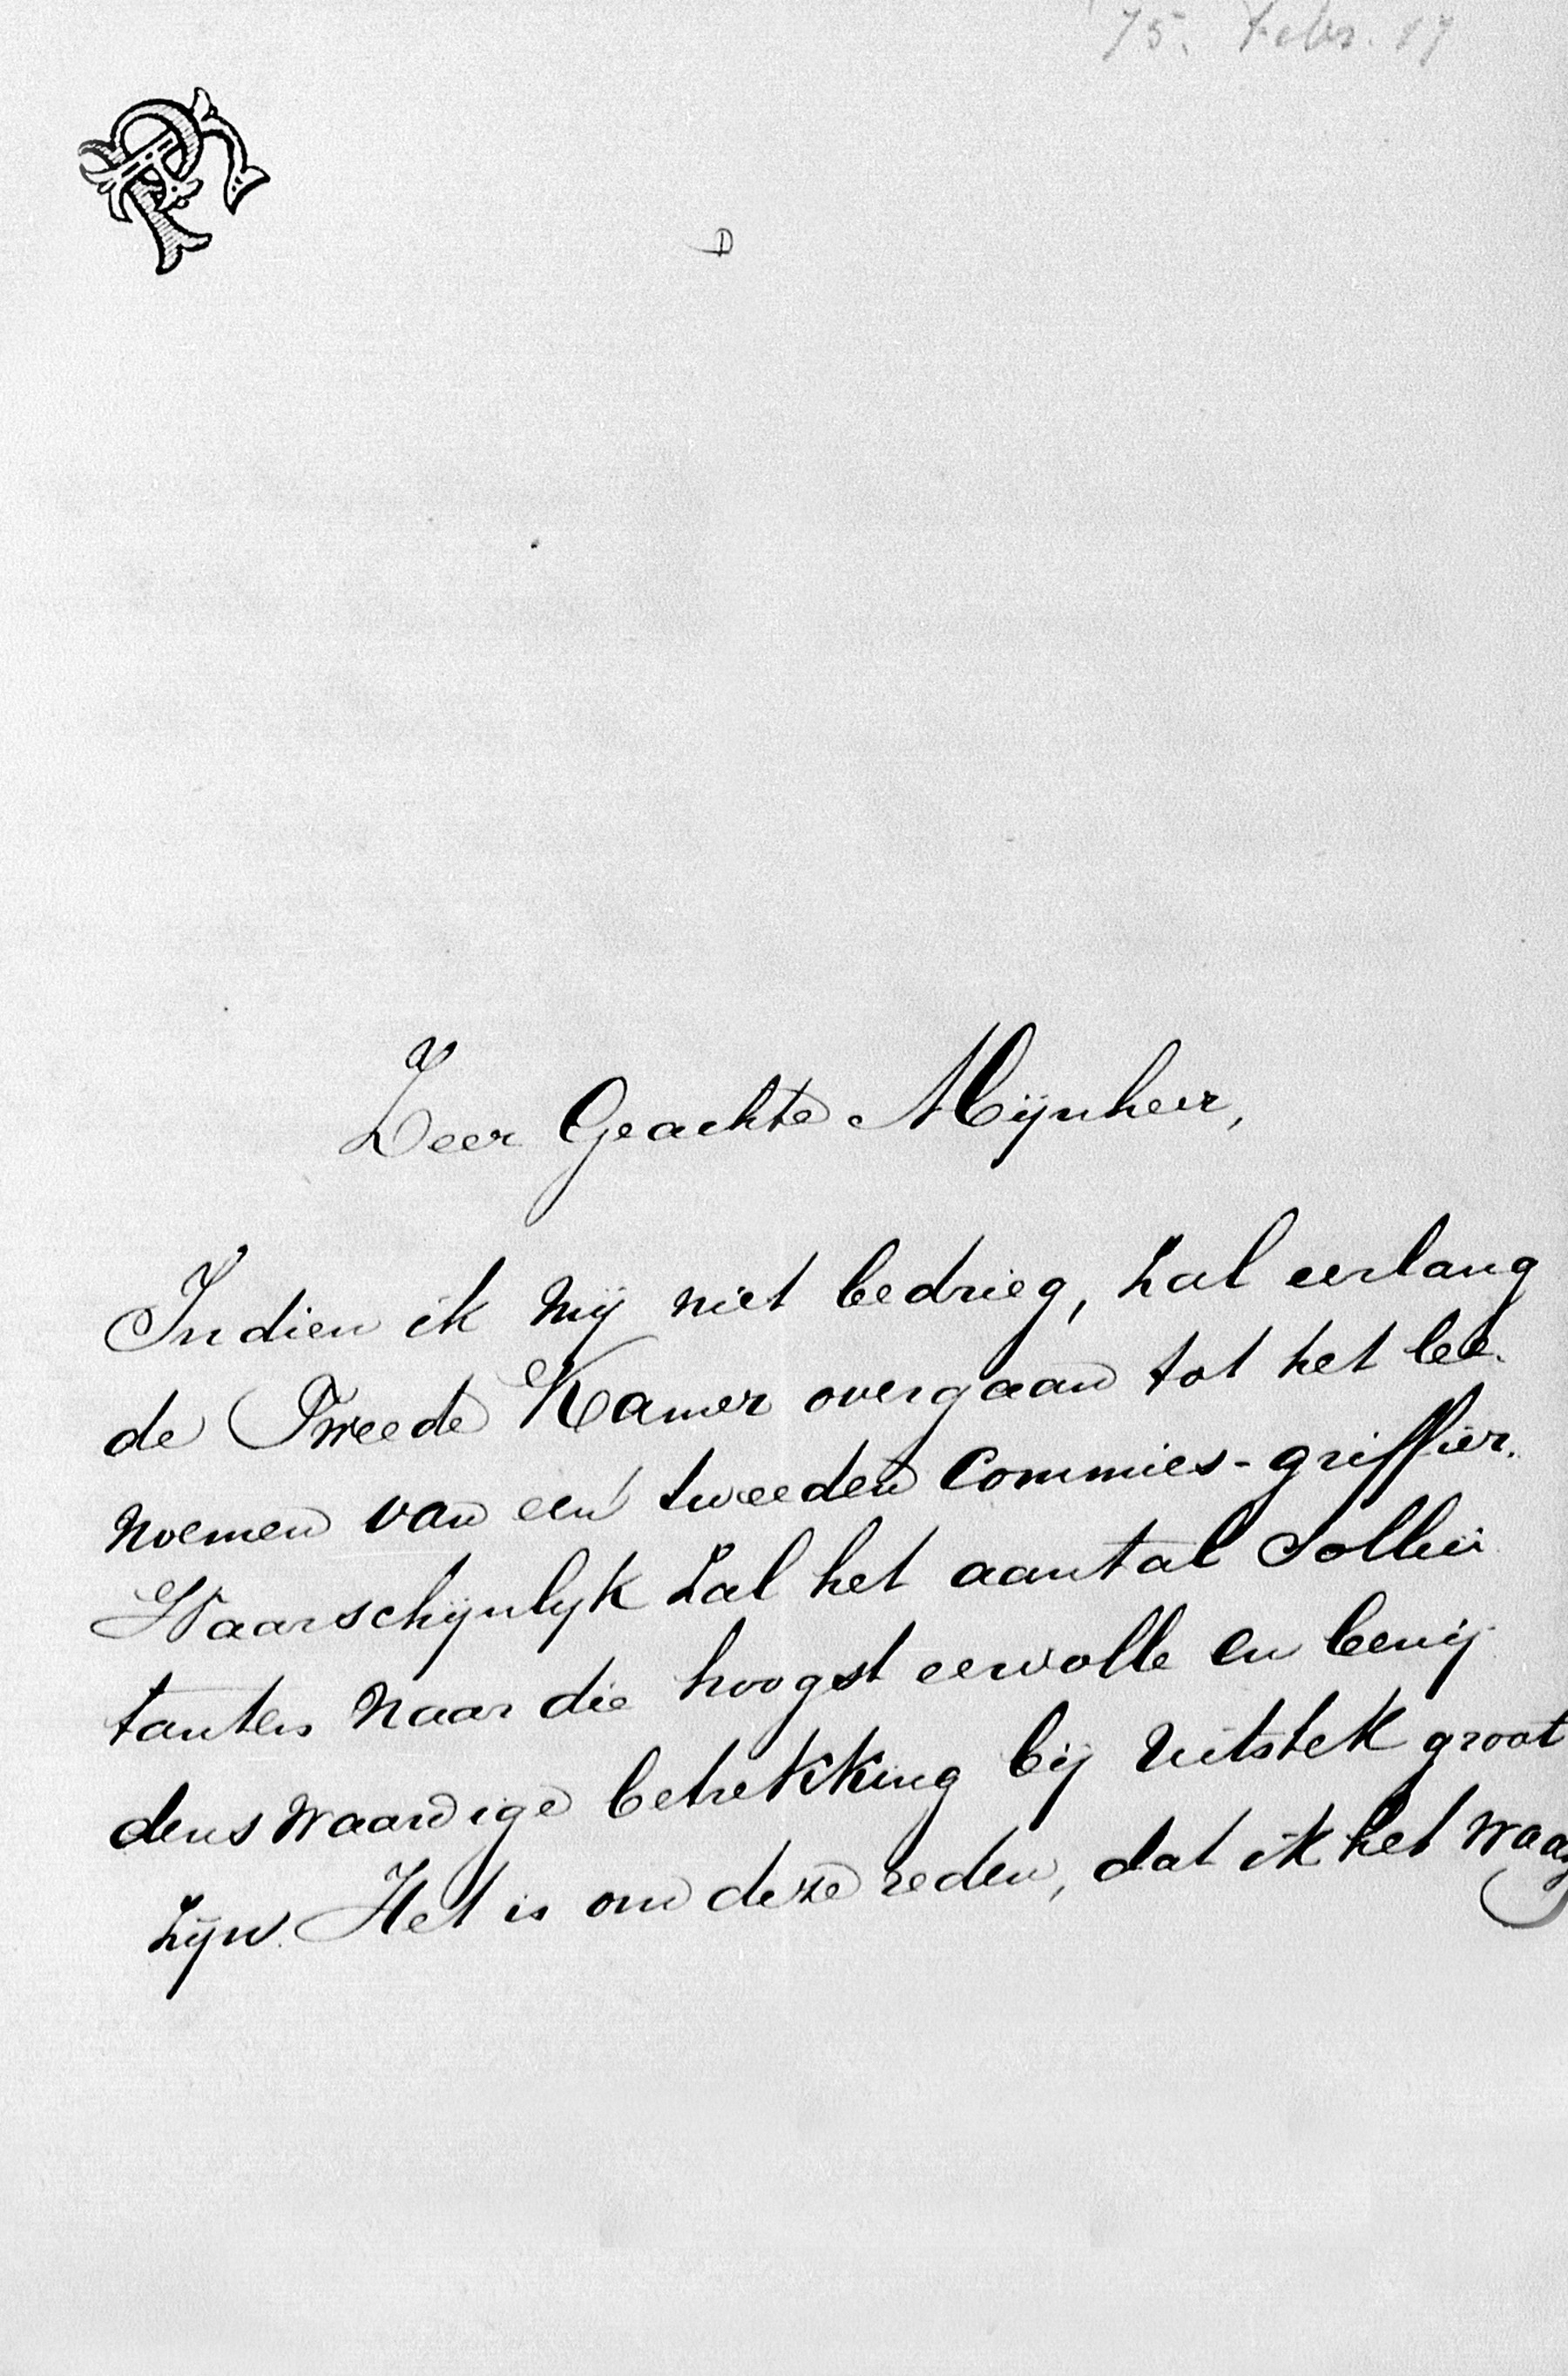 '75. Febr. 17
Zeer Geachte Mijnheer,
Indien ik mij niet bedrieg, zal eerlang
de Tweede Kamer overgaan tot het be-
noemen van een tweeden Commies-griffier.
Waarschijnlijk zal het aantal Sollici-
tanten naar die hoogst eervolle en benij-
denswaardige betrekking bij uitstek groot
zijn. Het is om deze reden, dat ik het waag